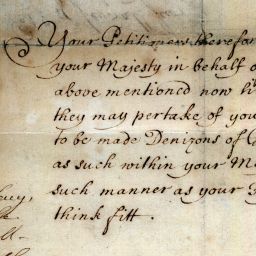 Your Petitioners therefor
your Majesty in behalf o
above mentioned now li
they may pertake of you
to be made Denizons of
as such within your M
such manner as your
think fitt.